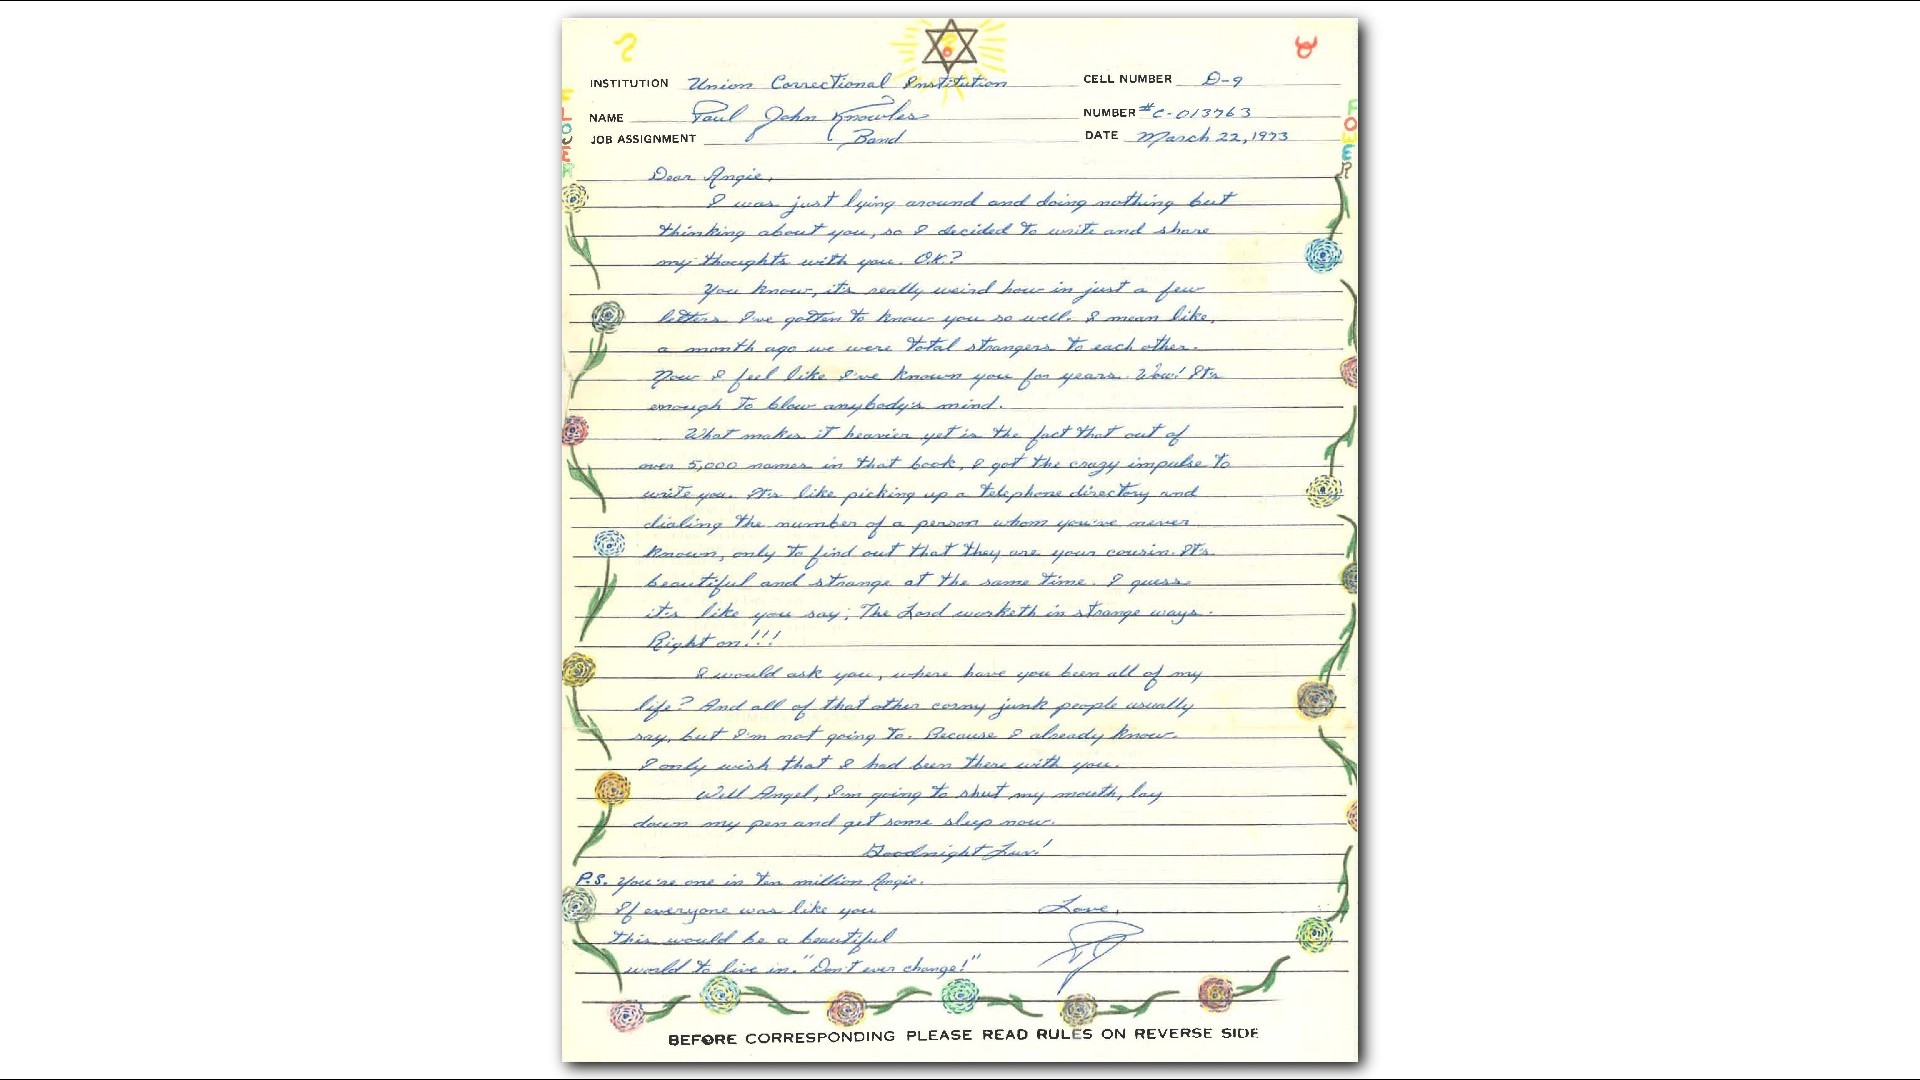 INSTITUTION Union Correctional Institution CELL NUMBER D-9
NAME Paul John Knowles NUMBER #C-013763
JOB ASSIGNMENT Band DATE March 22, 1973
Dear Angie,
I was just lying around and doing nothing but
thinking about you, so I decided to write and share
my thoughts with you. O.K.?
You know, it's really weird how in just a few
letters I've gotten to know you so well. I mean like,
a month ago we were total strangers to each other.
Now I feel like I've known you for years. Wow! It's
enough to blow anybody's mind.
What makes it heavier yet is the fact that out of
over 5,000 names in that book, I got the crazy impulse to
write you. It's like picking up a telephone directory and
dialing the number of a person whom you've never
known, only to find out that they are your cousin. It's
beautiful and strange at the same time. I guess
it's like you say; The Lord worketh in strange ways.
Right on!!!
I would ask you, where have you been all of my
life? And all of that other corny junk people usually
say, but I'm not going to. Because I already know.
I only wish that I had been there with you.
Well Angel, I'm going to shut my mouth, lay
down my pen and get some sleep now.
Goodnight Luv!
P.S. You're one in ten million Angie.
If everyone was like you Love,
this would be a beautiful
world to live in. "Don't ever change!"
BEFORE CORRESPONDING PLEASE READ RULES ON REVERSE SIDE